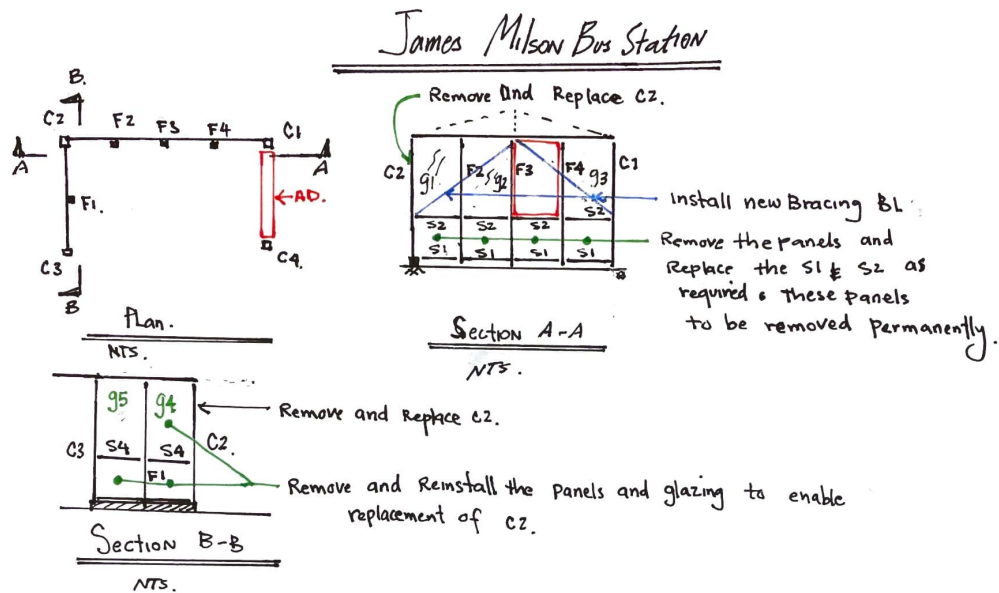 James Milson Bus Station
B.
C2 F2 F3 F4 C1
A A
F1.
AD.
C3 C4.
B
Plan.
NTS.
Remove And Replace C2.
C2 g1 F2 g2 F3 F4 g3 C1
S2
S2 S2 S2
S1 S1 S1 S1
Install new Bracing BL
Remove the panels and
Replace the S1 & S2 as
required. These panels
to be removed permanently.
Section A-A
NTS.
g5 g4
Remove and Replace C2.
C3 S4 S4 C2.
F1
Remove and Reinstall the panels and glazing to enable
replacement of C2.
Section B-B
NTS.